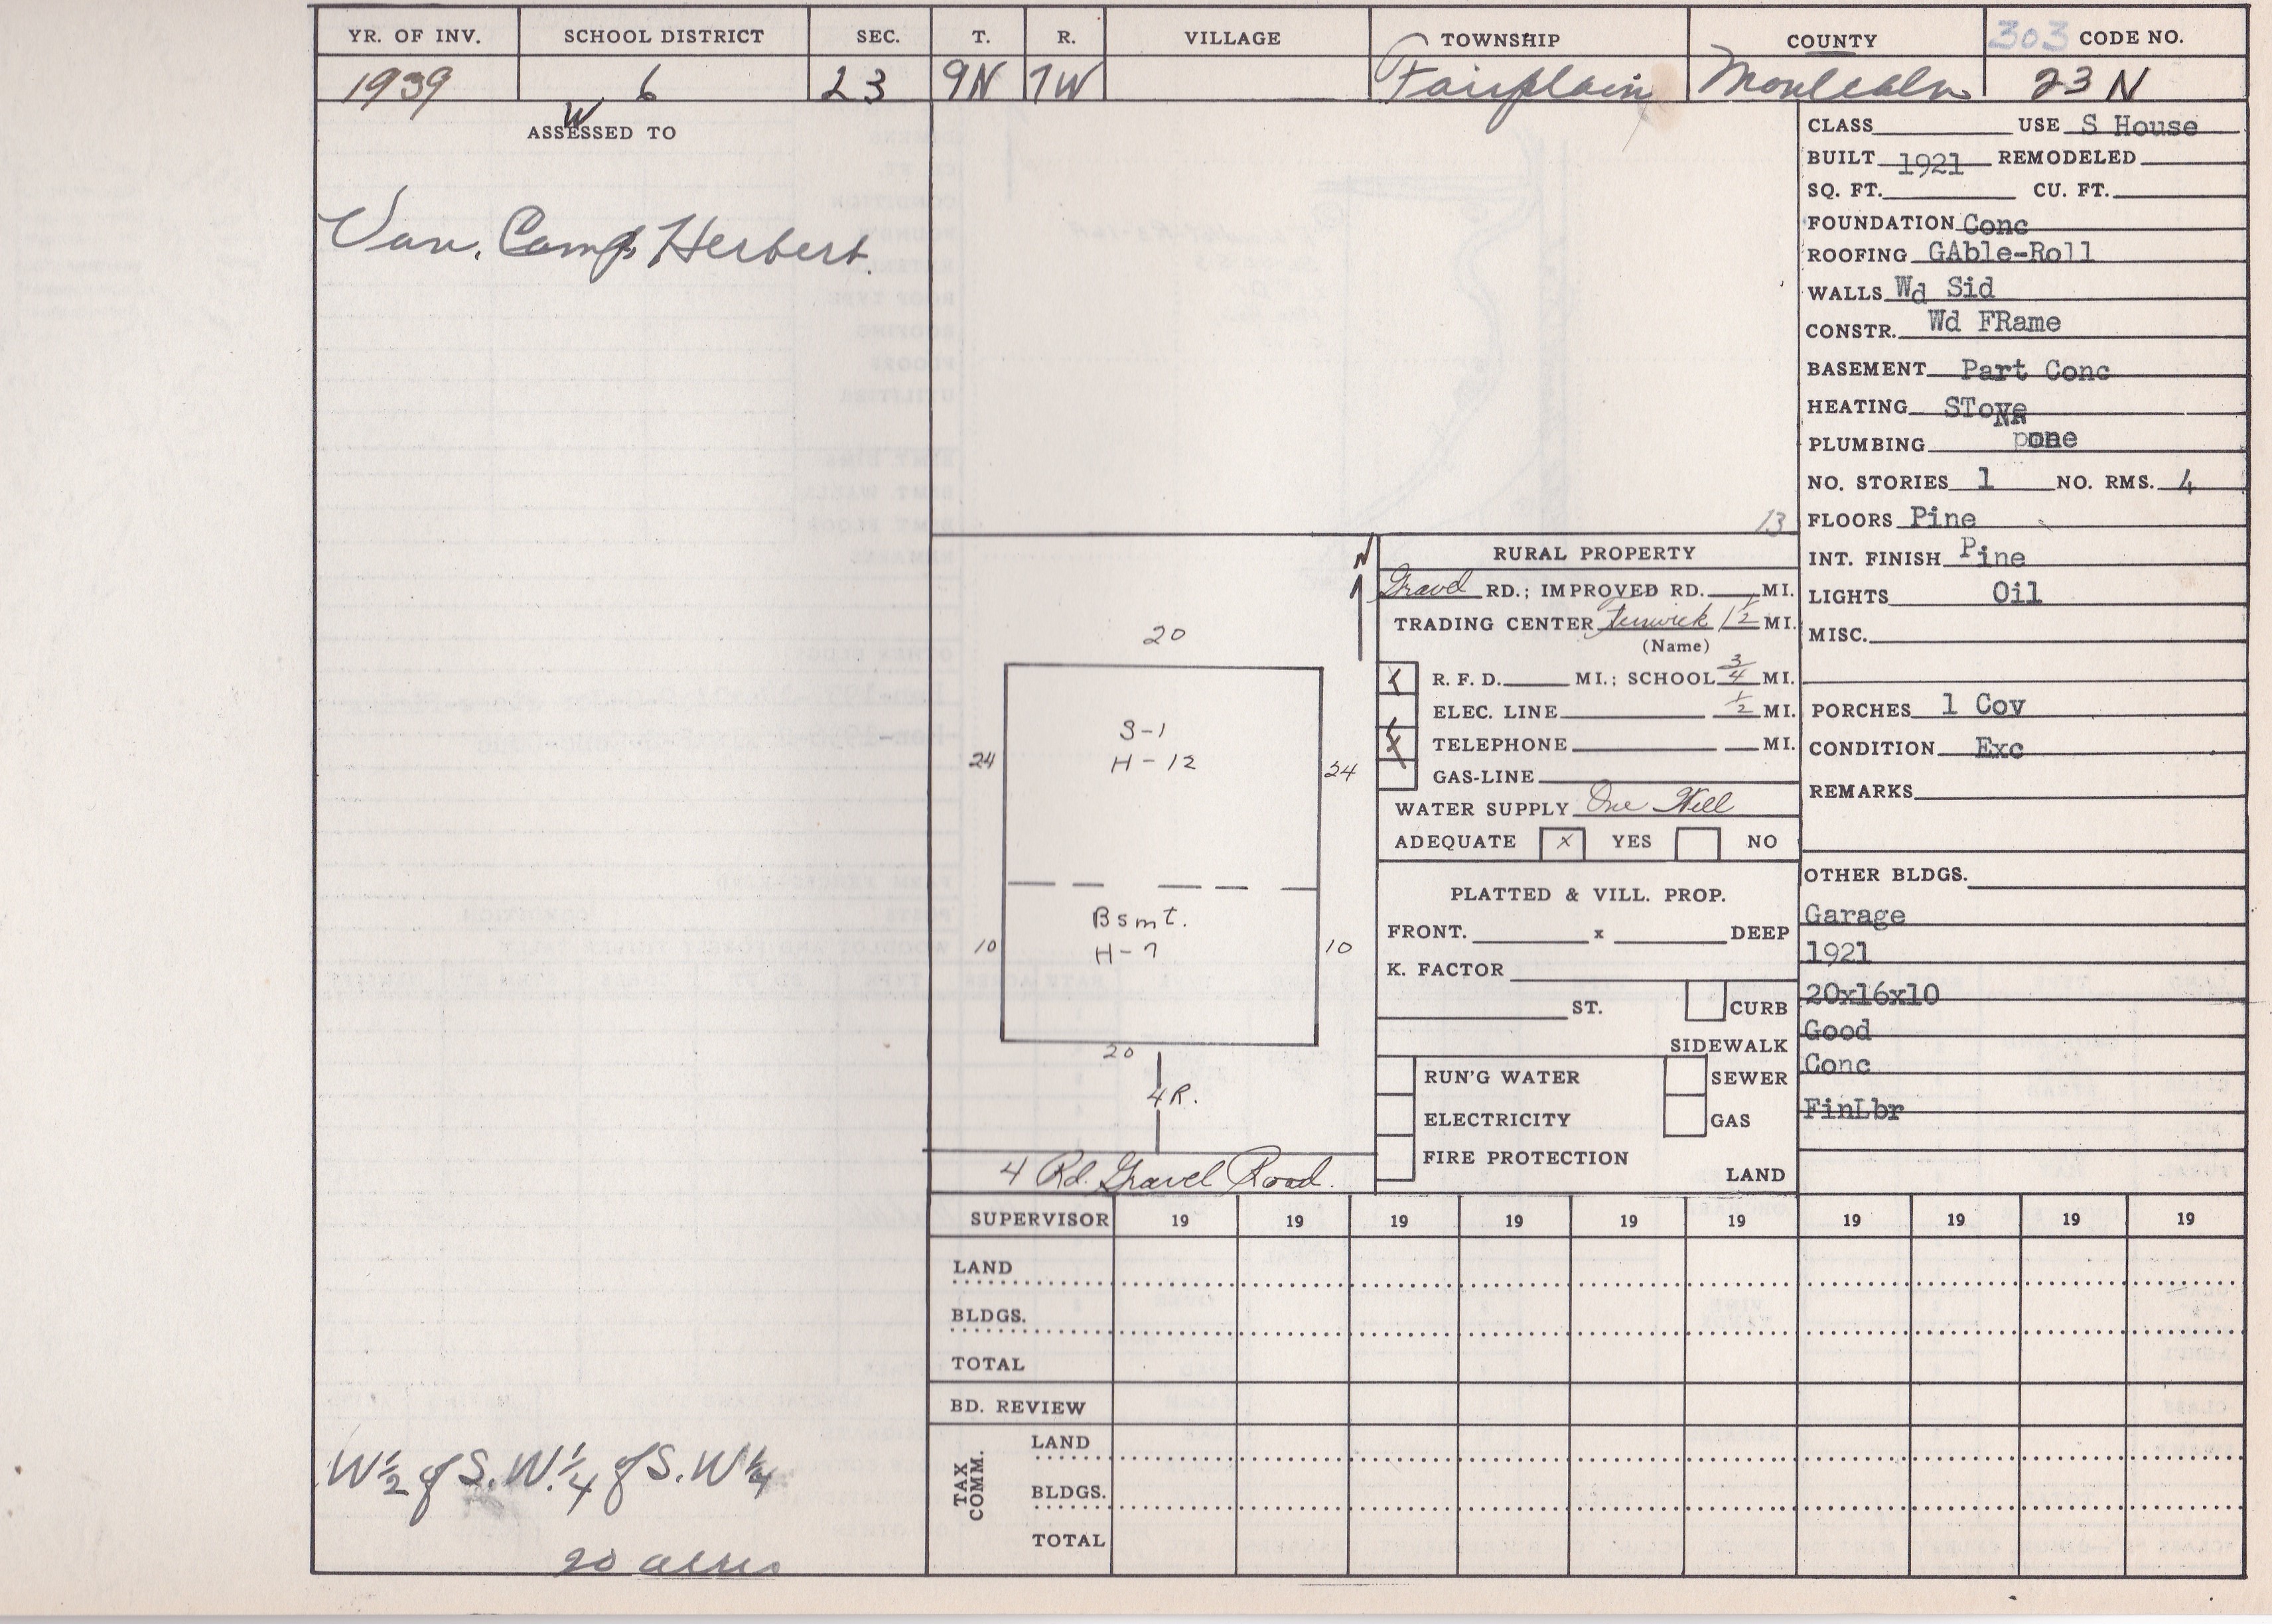 YR. OF INV. SCHOOL DISTRICT SEC. T. R. VILLAGE TOWNSHIP COUNTY 303 CODE NO.
1939 6 23 9N 7W Fairplain Montcalm 23 N
W
ASSESSED TO
Van Camp, Herbert.
W 1/2 of S.W. 1/4 of S.W 1/4
20 acres
13
N
20
S-1
H-12
24 24
Bsmt.
H-7
10 10
20
4 R.
4 Rd. Gravel Road.
RURAL PROPERTY
Gravel RD.; IMPROVED RD. MI.
TRADING CENTER Fenwick 1 1/2 MI.
(Name)
X R. F. D. MI.; SCHOOL 3/4 MI.
ELEC. LINE 1/2 MI.
X TELEPHONE MI.
GAS-LINE
WATER SUPPLY One Well
ADEQUATE X YES NO
PLATTED & VILL. PROP.
FRONT. x DEEP
K. FACTOR
ST. CURB
SIDEWALK
RUN'G WATER SEWER
ELECTRICITY GAS
FIRE PROTECTION
LAND
CLASS USE S House
BUILT 1921 REMODELED
SQ. FT. CU. FT.
FOUNDATION Conc
ROOFING GAble-Roll
WALLS Wd Sid
CONSTR. Wd FRame
BASEMENT Part Conc
HEATING STove
PLUMBING none
NO. STORIES 1 NO. RMS. 4
FLOORS Pine
INT. FINISH Pine
LIGHTS Oil
MISC.
PORCHES 1 Cov
CONDITION Exc
REMARKS
OTHER BLDGS.
Garage
1921
20x16x10
Good
Conc
FinLbr
SUPERVISOR 19 19 19 19 19 19 19 19 19 19
LAND
BLDGS.
TOTAL
BD. REVIEW
TAX COMM.
LAND
BLDGS.
TOTAL